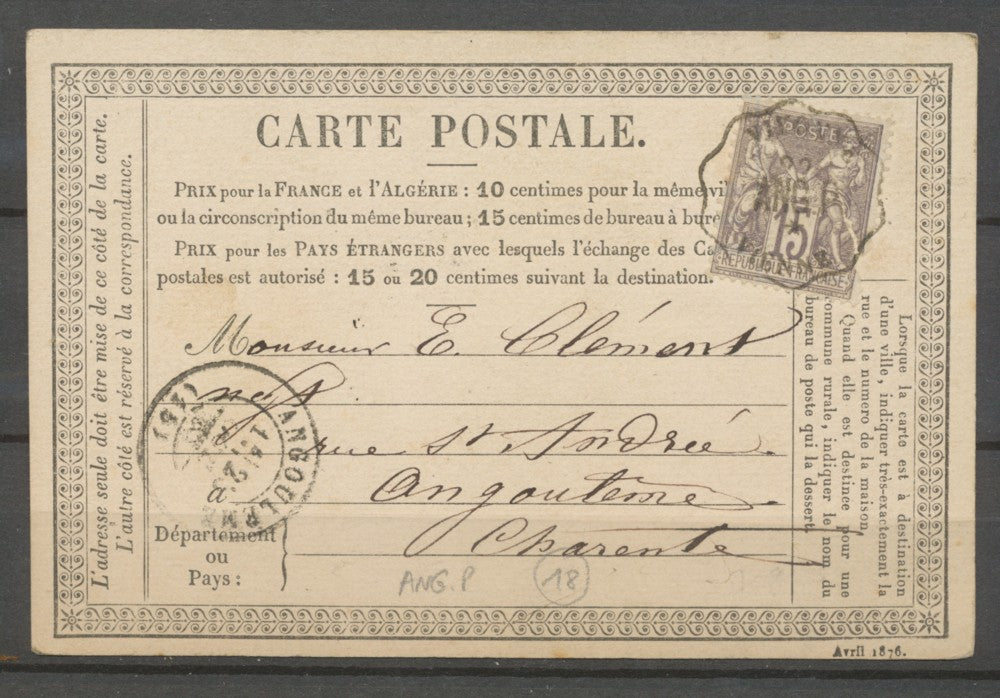 CARTE POSTALE.
PRIX pour la FRANCE et l'ALGÉRIE : 10 centimes pour la même vil
ou la circonscription du même bureau ; 15 centimes de bureau à bure
PRIX pour les PAYS ÉTRANGERS avec lesquels l'échange des Ca
postales est autorisé : 15 ou 20 centimes suivant la destination.
POSTE
22
ANG
15
REPUBLIQUE FRANÇAISE
L'adresse seule doit être mise de ce côté de la carte.
L'autre côté est réservé à la correspondance.
Monsieur E. Clément
rue St André
à Angoulême
Charente
Département
ou
Pays :
ANGOULÊME
(15)
ANG.P
18
Lorsque la carte est à destination
d'une ville, indiquer très-exactement la
rue et le numero de la maison,
Quand elle est destinée pour une
commune rurale, indiquer le nom du
bureau de poste qui la dessert.
Avril 1876.